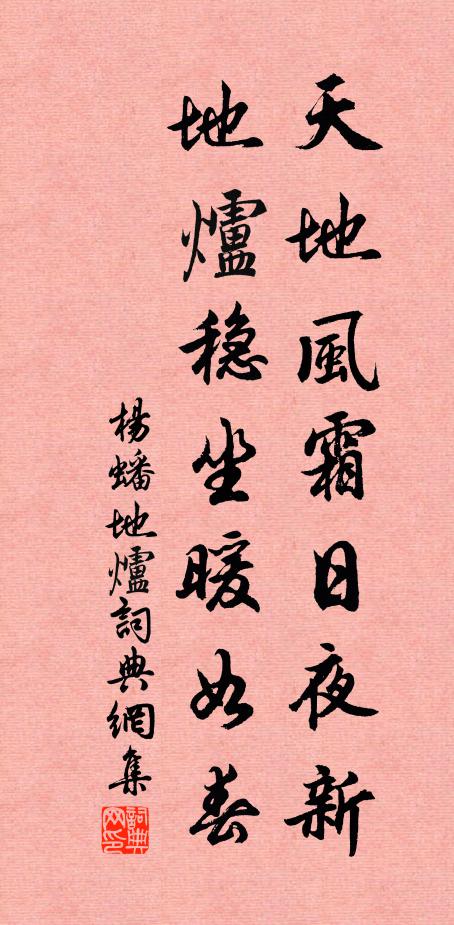 天地風霜日夜新
地爐穏坐暖如春
楊蟠地爐詞典網集
詞典网印